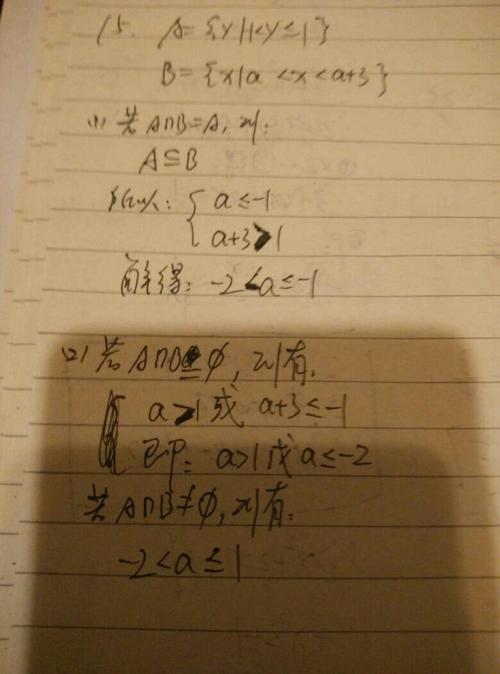 15. A={y|1<y≤1}
B={x|a<x<a+3}
(1) 若A∩B=A,则:
A⊆B
所以:{a≤-1
a+3>1
解得:-2<a≤-1
(2) 若A∩B=∅,则有:
a>1或 a+3≤-1
即:a>1或a≤-2
若A∩B≠∅,则有:
-2<a≤1